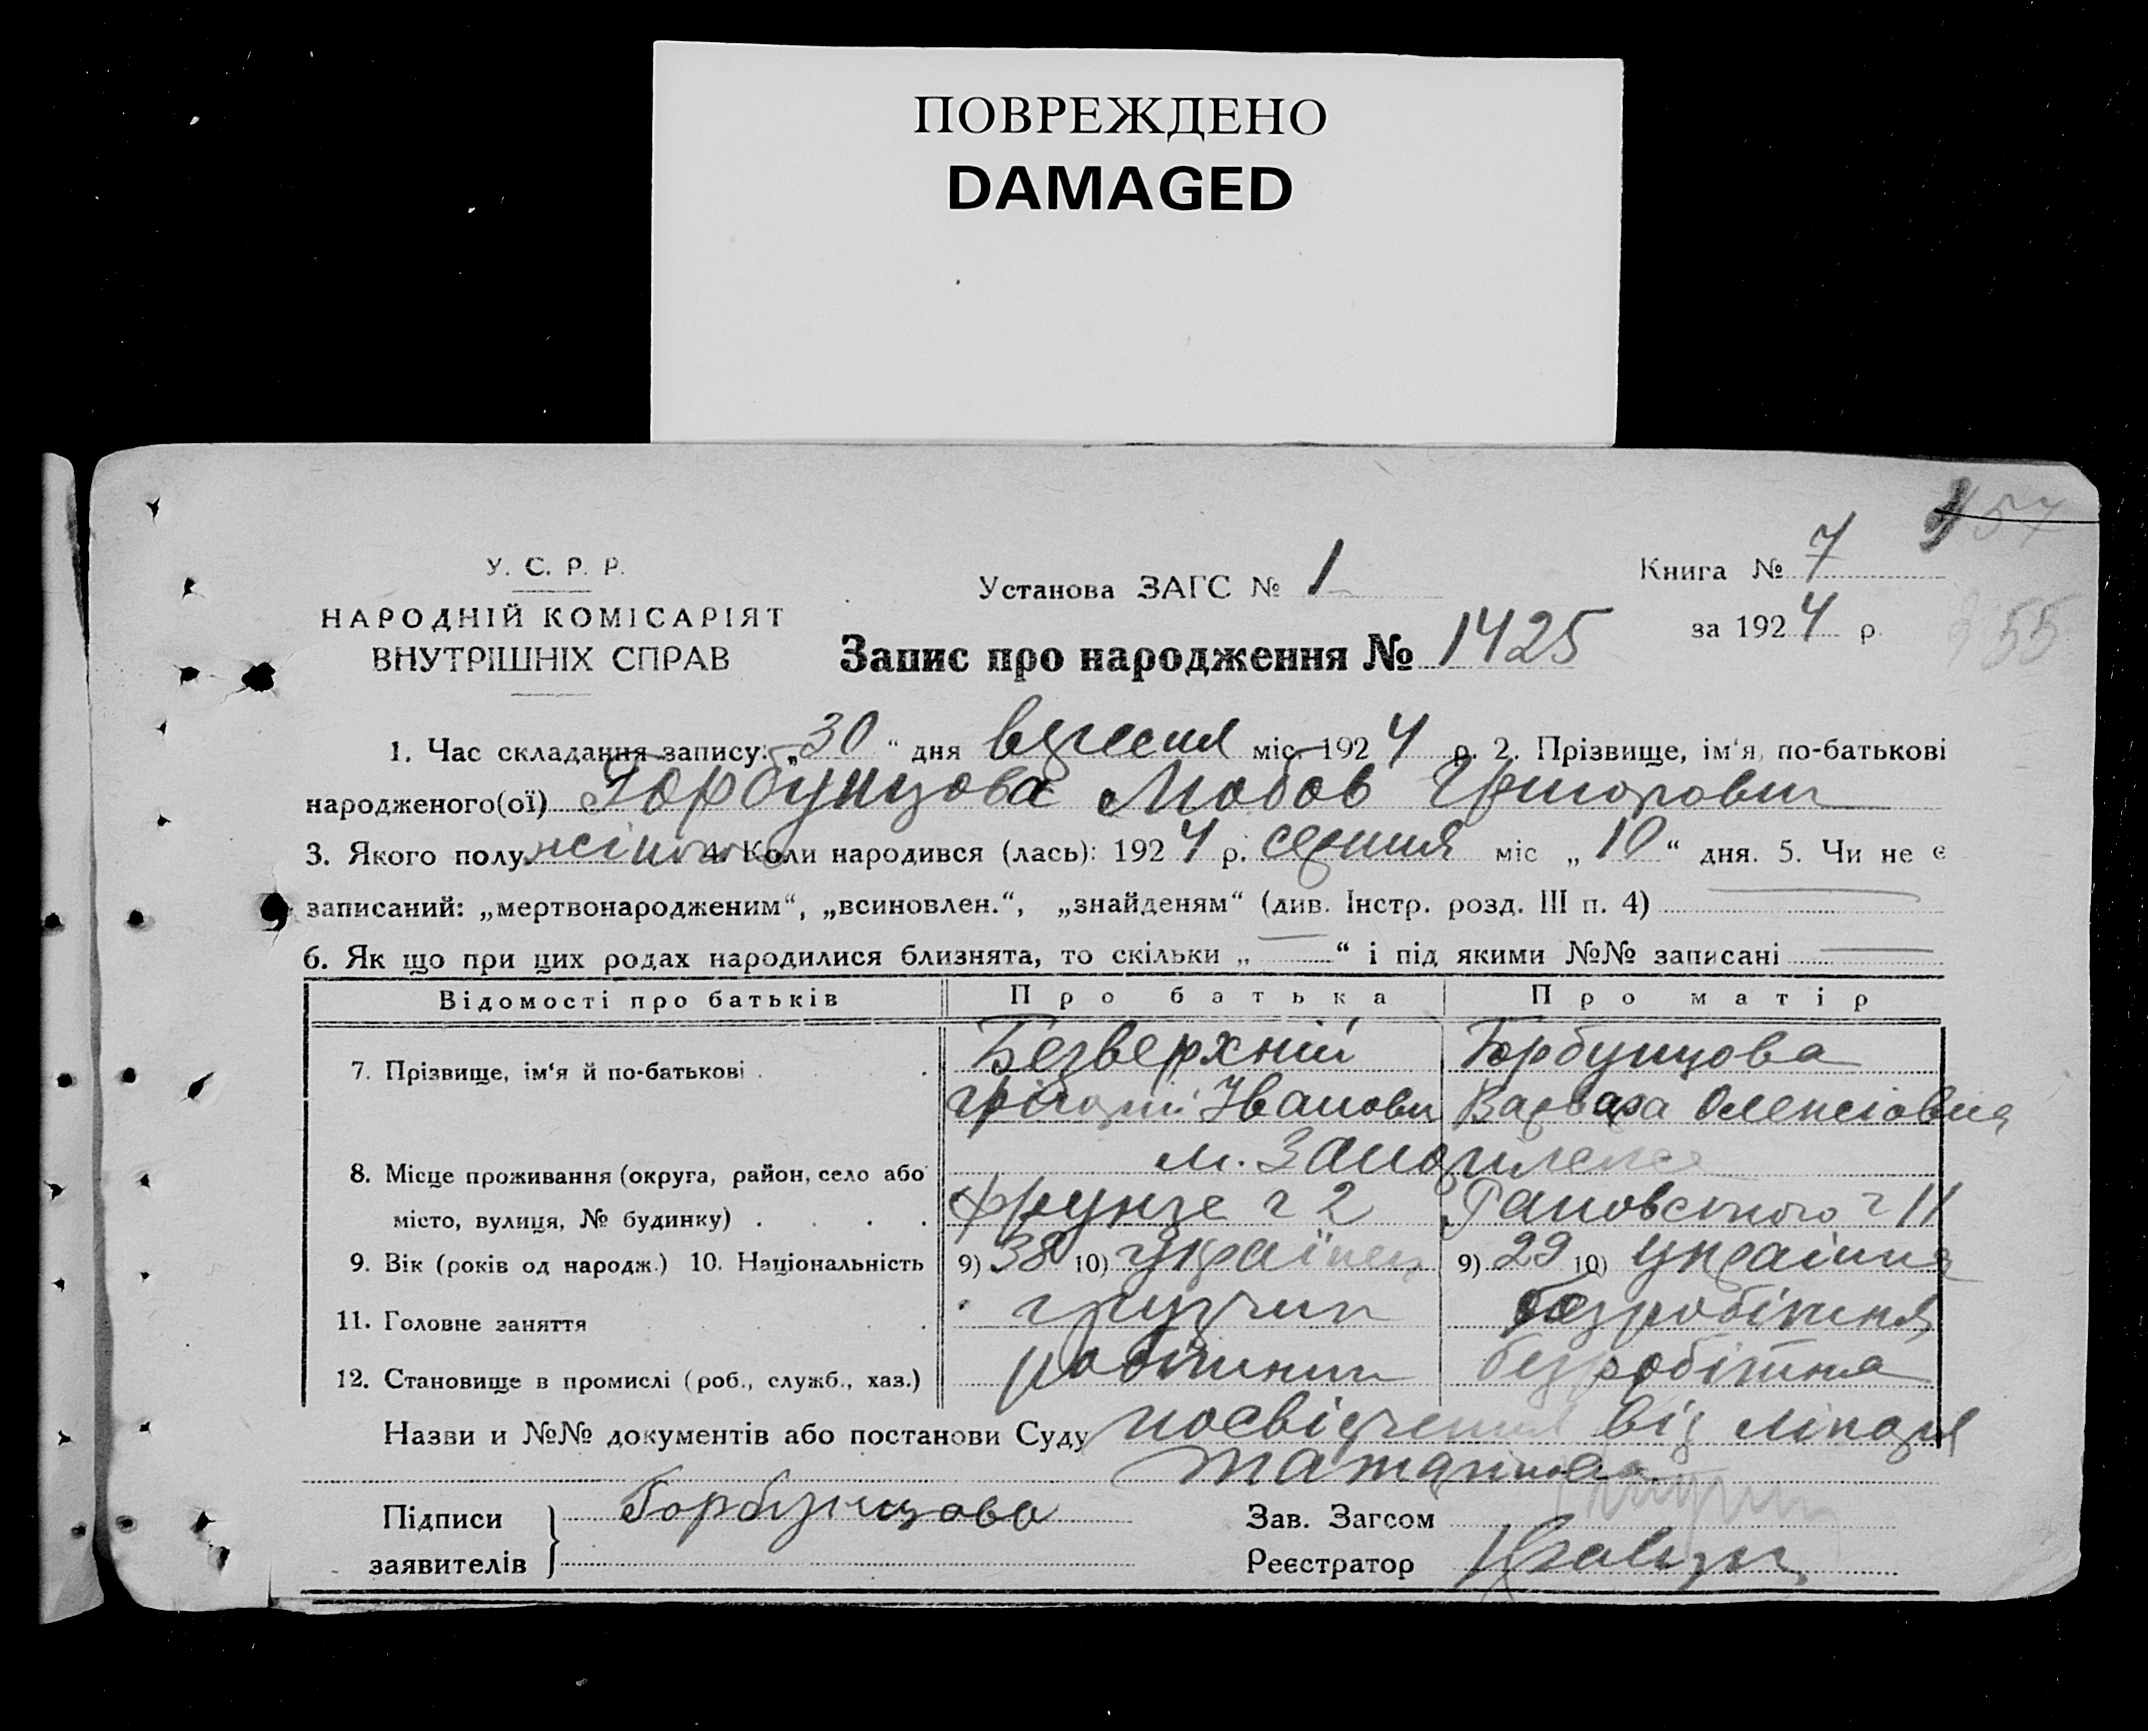 ПОВРЕЖДЕНО
DAMAGED
57
У. С. Р. Р.
НАРОДНІЙ КОМІСАРІЯТ
ВНУТРІШНІХ СПРАВ
Установа ЗАГС № 1
Книга № 7
за 1924 р.
55
Запис про народження № 1425
1. Час складання запису: „30“ дня вересня міс 1924 р. 2. Прізвище, ім'я, по-батькові
народженого(ої) Горбунцова Любов Григоровн
3. Якого полу жіночого 4. Коли народився (лась): 1924 р. серпня міс „10“ дня. 5. Чи не є
записаний: „мертвонародженим“, „всиновлен.“, „знайденям“ (див. Інстр. розд. III п. 4)
6. Як що при цих родах народилися близнята, то скільки „ “ і під якими №№ записані
Відомості про батьків Про батька Про матір
7. Прізвище, ім'я й по-батькові Безверхній Горбунцова
Грігорій Іванови Варвара Олексіовна
8. Місце проживання (округа, район, село або м. Запоріжжє
місто, вулиця, № будинку) Фрунзе ч 2 ч 11
9. Вік (років од народж.) 10. Національність 9) 38 10) українец 9) 29 10) українка
11. Головне заняття грузчик безробітня
12. Становище в промислі (роб., служб., хаз.) робітник безробітна
Назви и №№ документів або постанови Суду посвідчення від лікаря
Підписи Горбунцова Зав. Загсом
заявителів Реєстратор